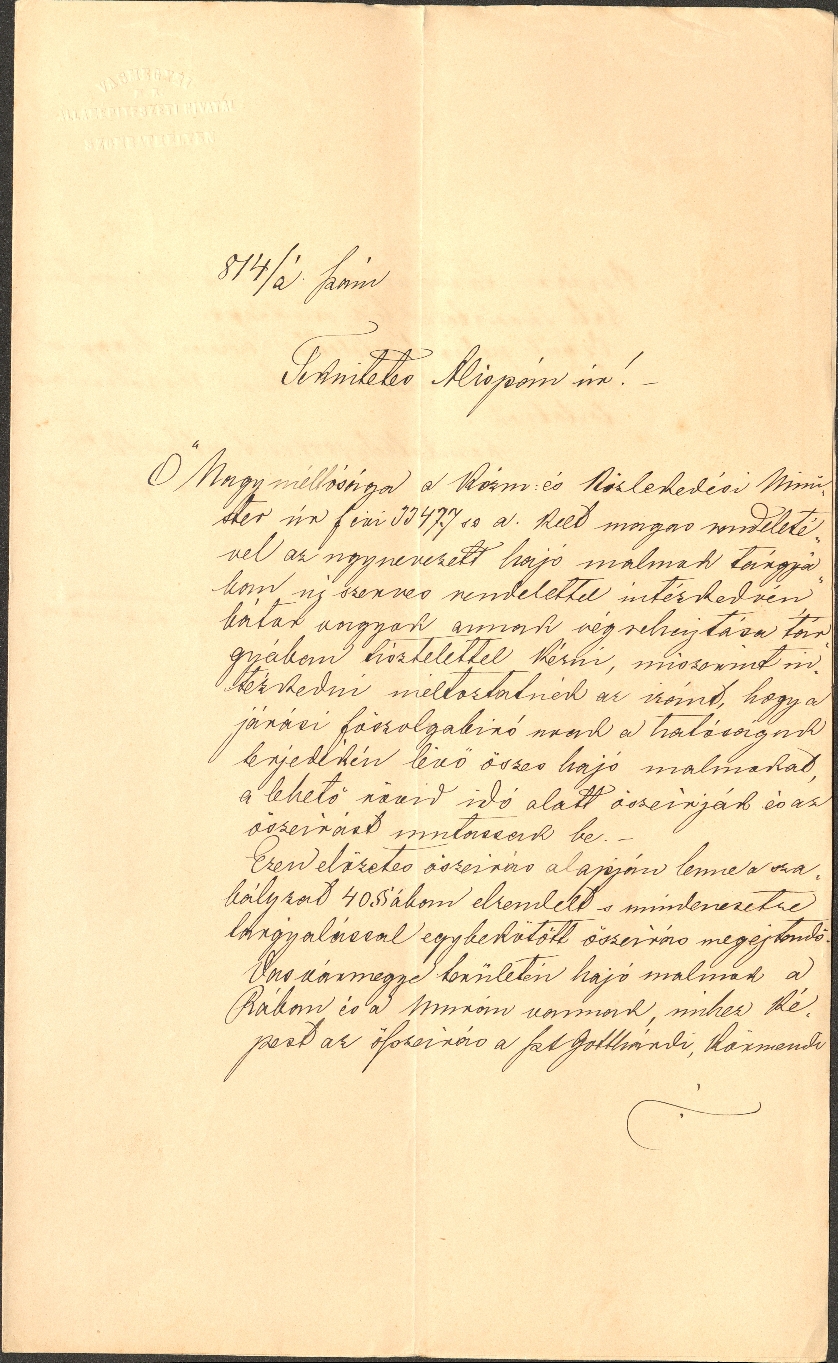 VASMEGYEI
ÁLLAMÉPITÉSZETI HIVATAL
SZOMBATHELYEN
814/á. szám
Tekintetes Alispán úr! –
Ő Nagyméltósága a Közm: és Közlekedési Mini-
ster úr f. évi 33477 sz a. kelt magas rendeleté-
vel az ugynevezett hajó malmok tárgyá-
ban új szerves rendelettel intézkedvén
bátor vagyok annak végrehajtása tár-
gyában tisztelettel kérni, miszerint in-
tézkedni méltóztatnék az iránt, hogy a
járási főszolgabiró urak a hatóságuk
terjedtén lévő öszes hajó malmokat,
a lehető rövid idő alatt öszeirják és az
öszeirást mutassák be. –
Ezen előzetes öszeirás alapján lenne a sza-
bályzat 40 §sában elrendelt s mindenesetre
tárgyalással egybekötött öszeirás megejtendő.
Vasvármegye területén hajó malmok a
Rábán és a Murán vannak, mihez ké-
pest az öszeirás a szt Gotthárdi, Körmendi